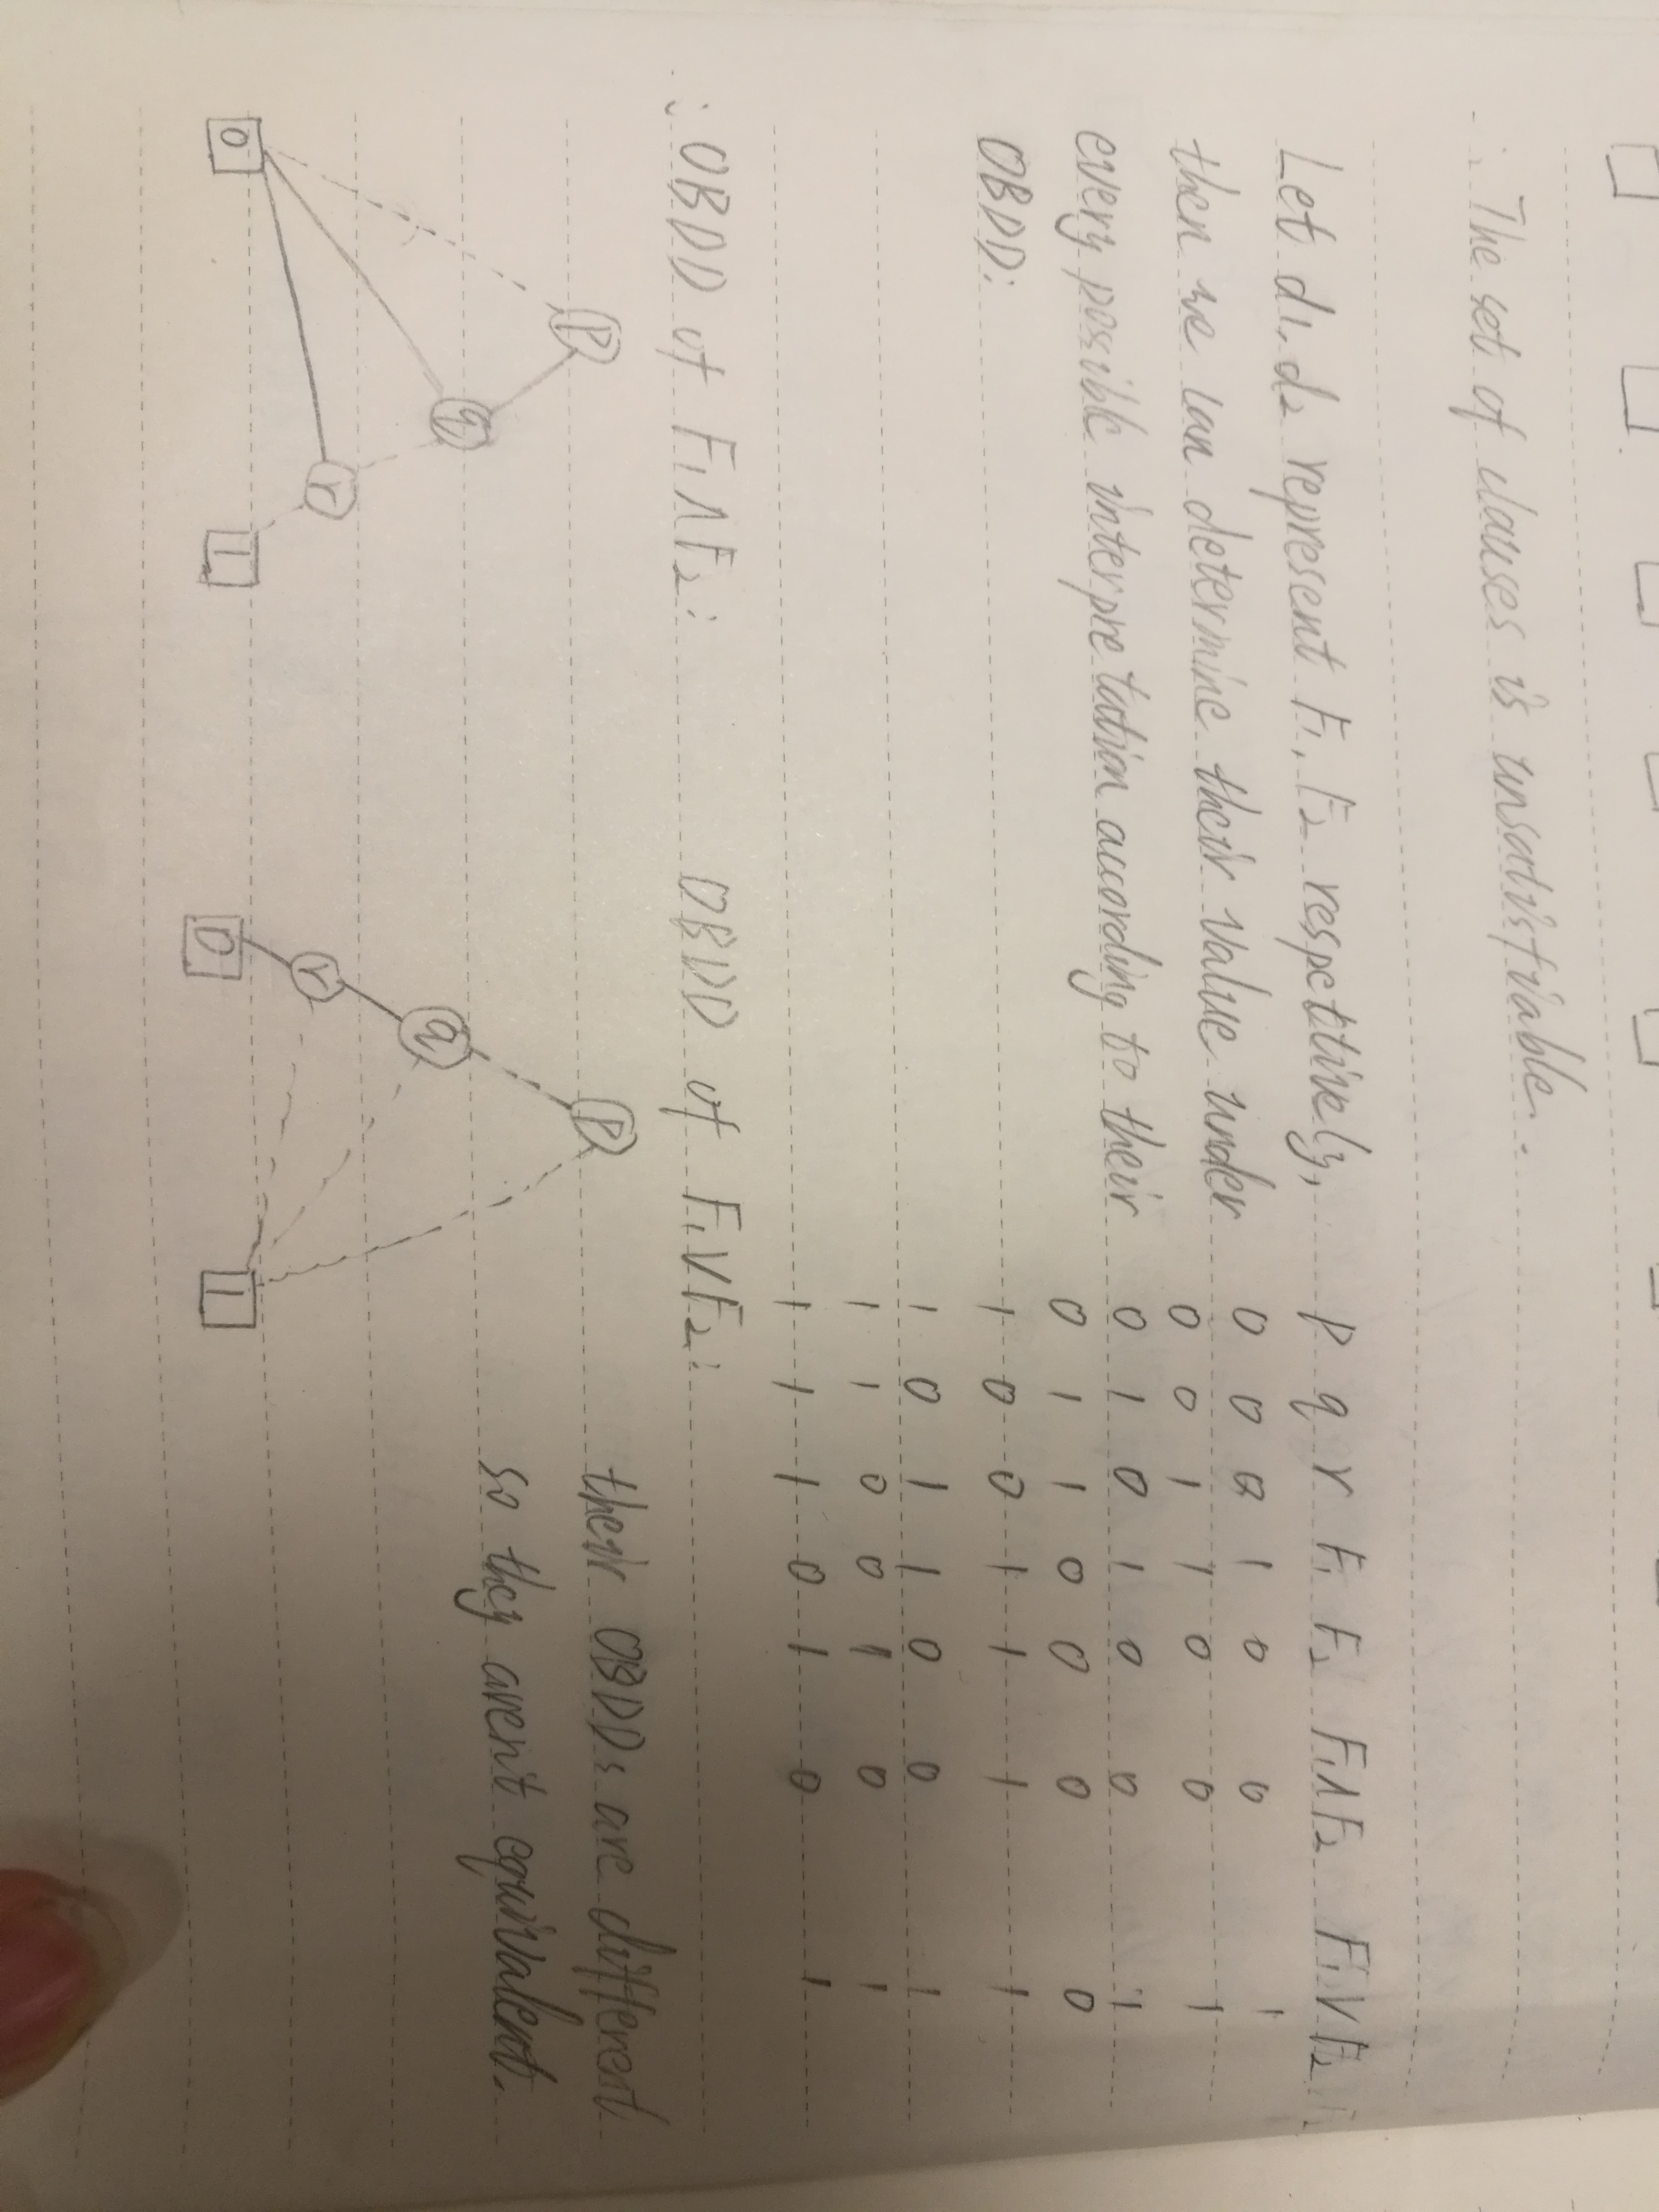 ∴ The set of clauses is unsatisfiable.
Let d1, d2 represent F1, F2 respectively,
then we can determine their value under
every possible interpretation according to their
OBDD:
p q r F1 F2 F1∧F2 F1∨F2
0 0 0 1 0 0 1
0 0 1 1 0 0 1
0 1 0 1 0 0 1
0 1 1 0 0 0 0
1 0 0 1 1 1 1
1 0 1 1 0 0 1
1 1 0 0 1 0 1
1 1 1 0 1 0 1
∴ OBDD of F1∧F2: OBDD of F1∨F2:
p
q
r
0 1
p
q
r
0 1
their OBDDs are different
so they arent equivalent.